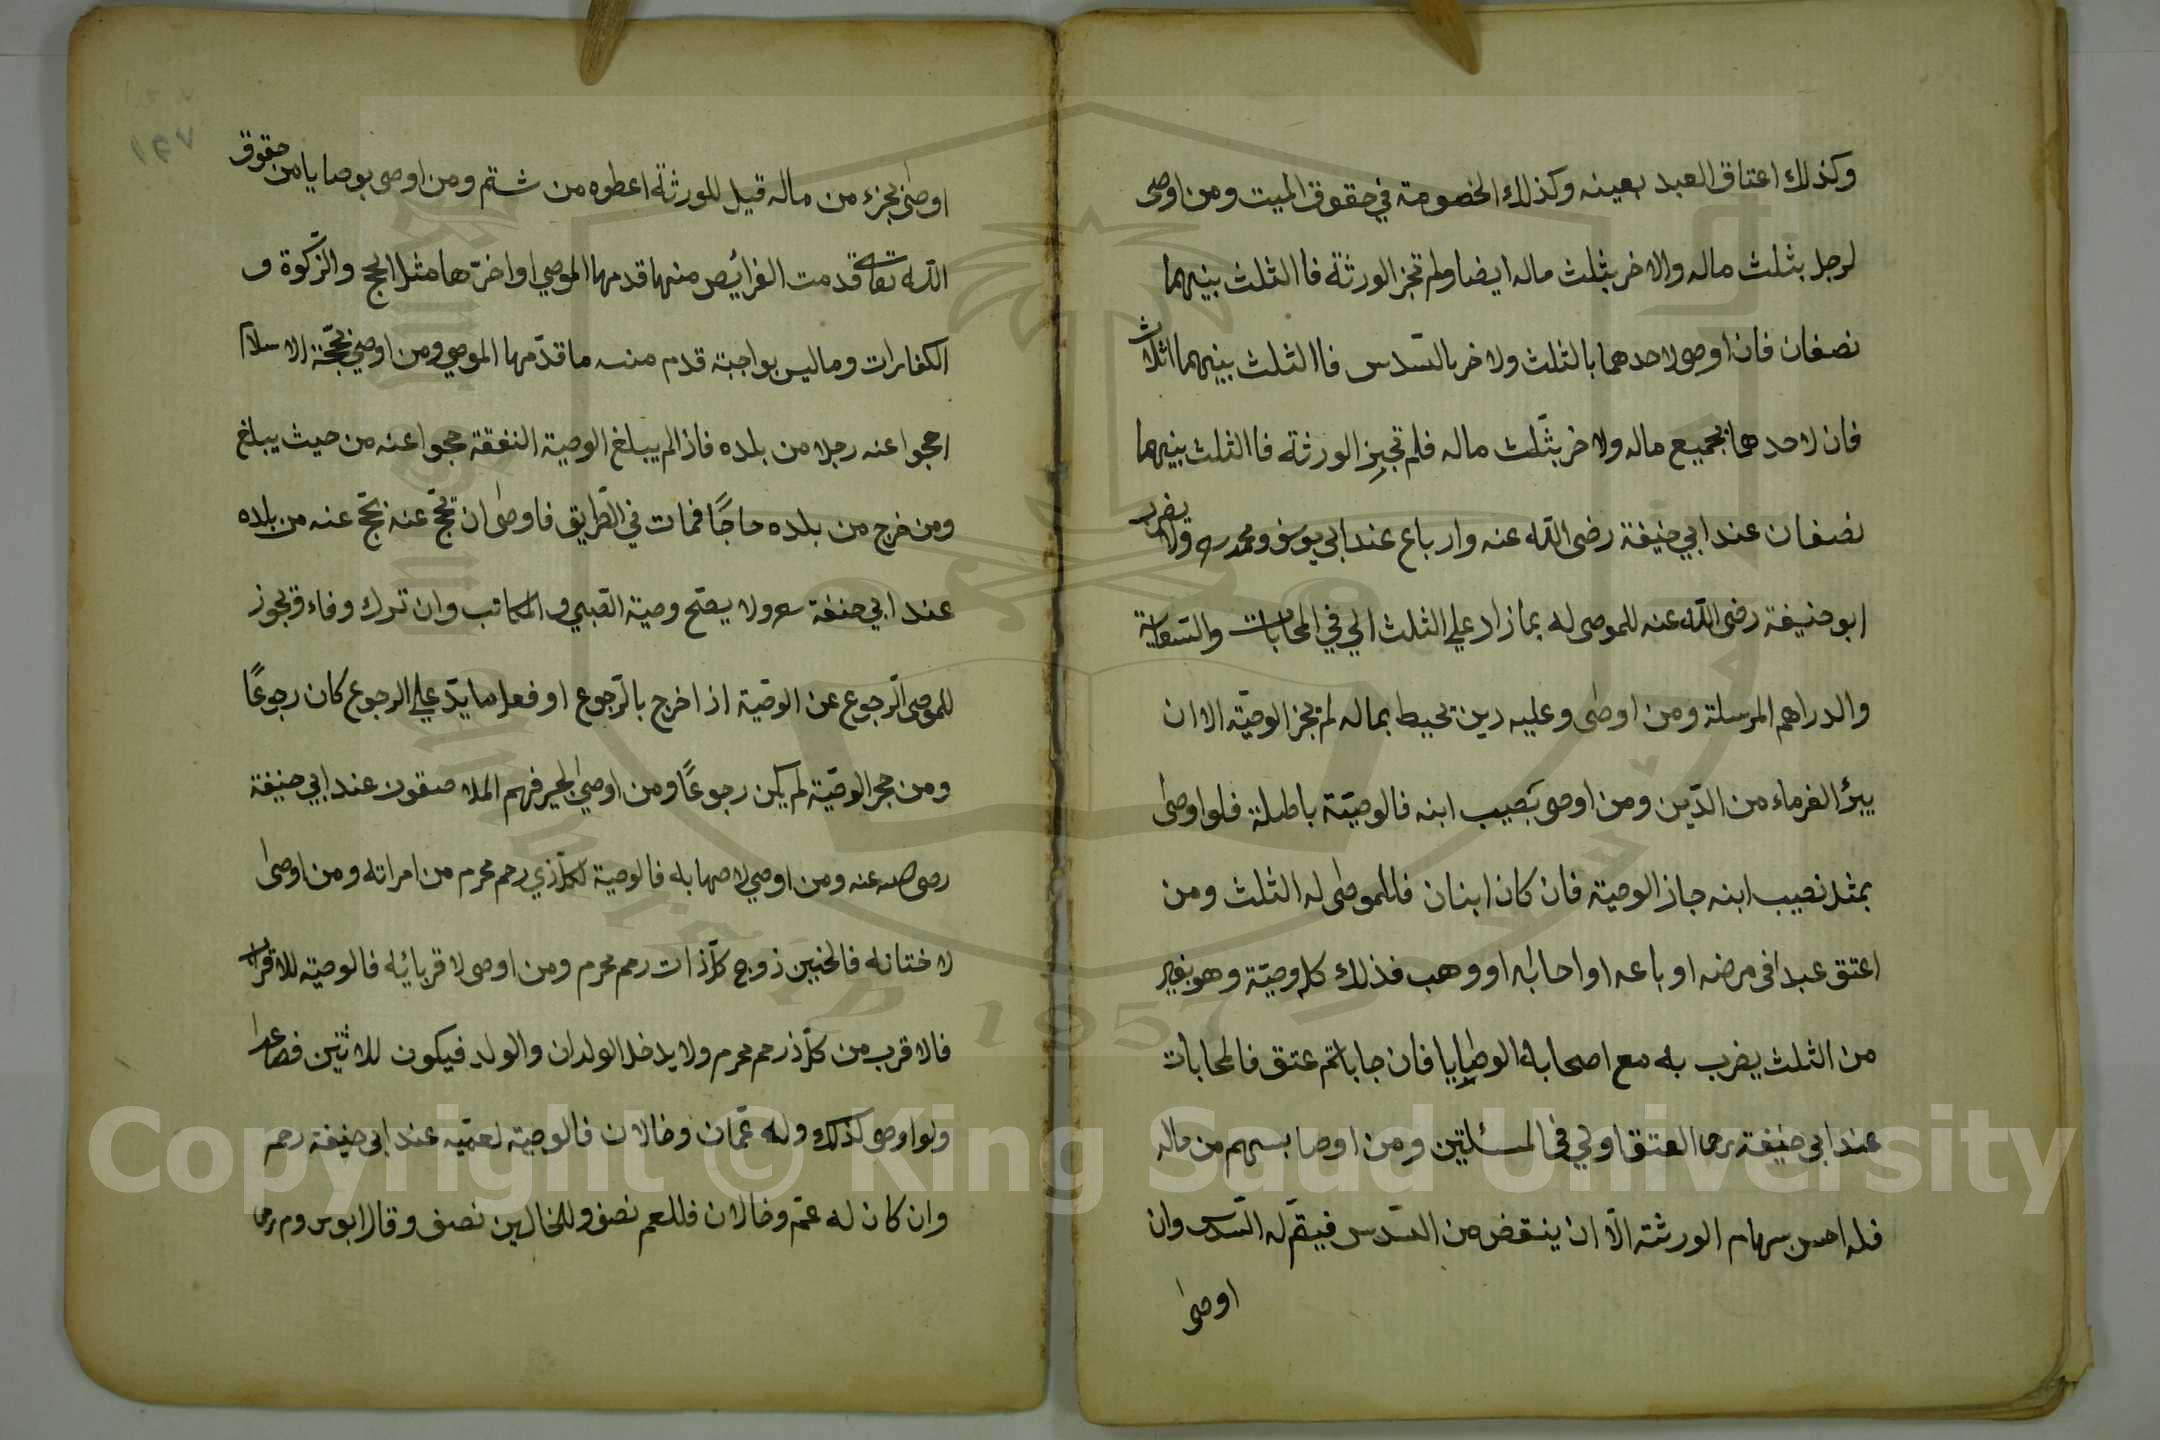 وكذلك اعتاق العبد بعينه وكذلك الخصومة في حقوق الميت ومن اوصى
لرجل بثلث ماله والاخر بثلث ماله ايضا ولم تجز الورثة فاالثلث بينهما
نصفان فان اوصى لاحدهما بالثلث ولاخر بالسّدس فاالثلث بينهما اثلاث
فان لاحدهما بجميع ماله ولاخر بثلث ماله فلم تجيز الورثة فاالثلث بينهما
نصفان عند ابي حنيفة رضى اللّه عنه وارباع عند ابي يوسف ومحمد ولا يضرب
ابو حنيفة رضى اللّه عنه للموصى له بمازاد علي الثلث الي في المحابات والسّعاية
والدراهم المرسلة ومن اوصٰى وعليه دين تحيط بماله لم تجز الوصيّة الا ان
يبرؤ الغرماء من الدّين ومن اوصى بنصيب ابنه فالوصيّة باطلة فلو اوصٰى
بمثل نصيب ابنه جاز الوصية فان كان ابنان فاللموصٰى له الثلث ومن
اعتق عبدا فى مرضه او باعه او احابا له او وهب فذلك كله وصيّة وهو بغير
من الثلث يضرب به مع اصحابه الوصايا فان حابا ثم عتق فالمحابات
عند ابي حنيفة رحم العتق اولي فى المسئلتين ومن اوصا بسهم من ماله
فله احسن سهام الورثة الّا ان ينقض من السّدس فيتمّ له السّدس وان
اوصٰى
اوصٰى بجزء من ماله قيل للورثة اعطوه من شتم ومن اوصى بوصايا من حقوق
اللّه تعالى قدمت الفرائيض منها قدمها الموصي او اخرّها مثل الحج والزّكوة و
الكفارات وما ليس بواجبة قدم منه ما قدّمها الموصي ومن اوصي بحجّة الاسلام
احجوا عنه رجلا من بلده فاذالم يبلغ الوصية النفقة حجوا عنه من حيث يبلغ
ومن خرج من بلده حاجًا فمات في الطّريق فاوصٰى ان تحجّ عنه تحجّ عنه من بلده
عند ابي حنفة رحم ولا يصّح وصية الصّبي والمكاتب وان ترك وفاء ويجوز
للموصى الّرجوع عن الوصّية اذا خرج بالّرجوع او فعل ما يدّ علي الرجوع كان رجوعًا
ومن حجر الوصّية لم يكن رجوعًا ومن اوصيٰ لجير فهم الملاصقون عند ابي حنيفة
رضى الله عنه ومن اوصي لاصهابه فالوصية لكلّ ذي رحم محرم من امراته ومن اوصٰى
لاختانه فالختين زوج كلّ ذات رحم محرم ومن اوصى لاقربائيه فالوصية للاقرب
فالاقرب من كلّ ذ رحم محرم ولا يدخل الولدان والولد فيكون للاثنين فصاعدا
ولو اوصى كذلك وله عمّان وخالان فالوصية لعمّيه عند ابى حنيفة رحم
وان كان له عمّ وخالان فللعم نصف وللخالين نصف وقال ابو س وم رحم
Copyright © King Saud University
1957